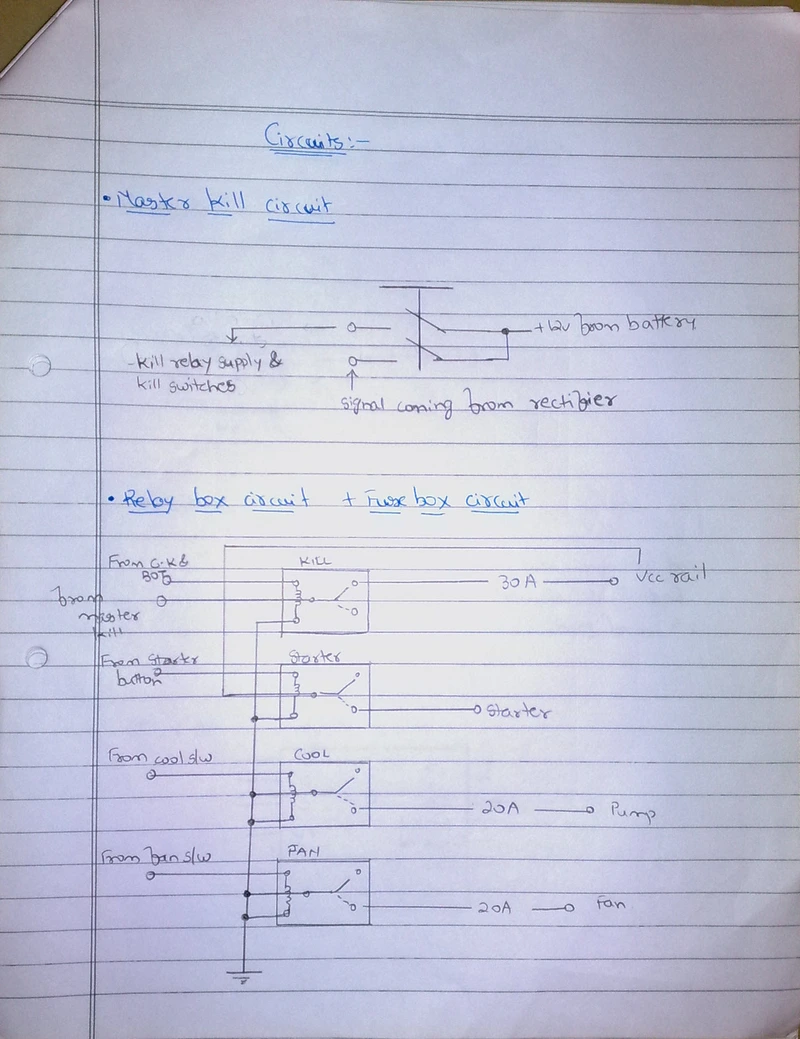 Circuits:-
• Master kill circuit
+12v from battery
-kill relay supply &
kill switches
signal coming from rectifier
• Relay box circuit + Fuse box circuit
From C.K &
BOTS
KILL
30A
Vcc rail
from
master
kill
From Starter
button
Starter
Starter
From cool s/w
COOL
20A
Pump
From fan s/w
FAN
20A
Fan